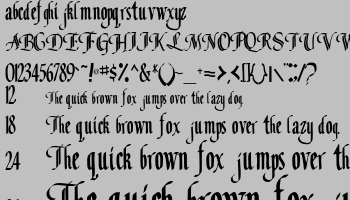 abcdefghijklmnopqrstuvwxyz
ABCDEFGHIJKLMNOPQRSTUVW
0123456789
12 The quick brown fox jumps over the lazy dog.
18 The quick brown fox jumps over the lazy dog.
24 The quick brown fox jumps over th
The quick brown fox